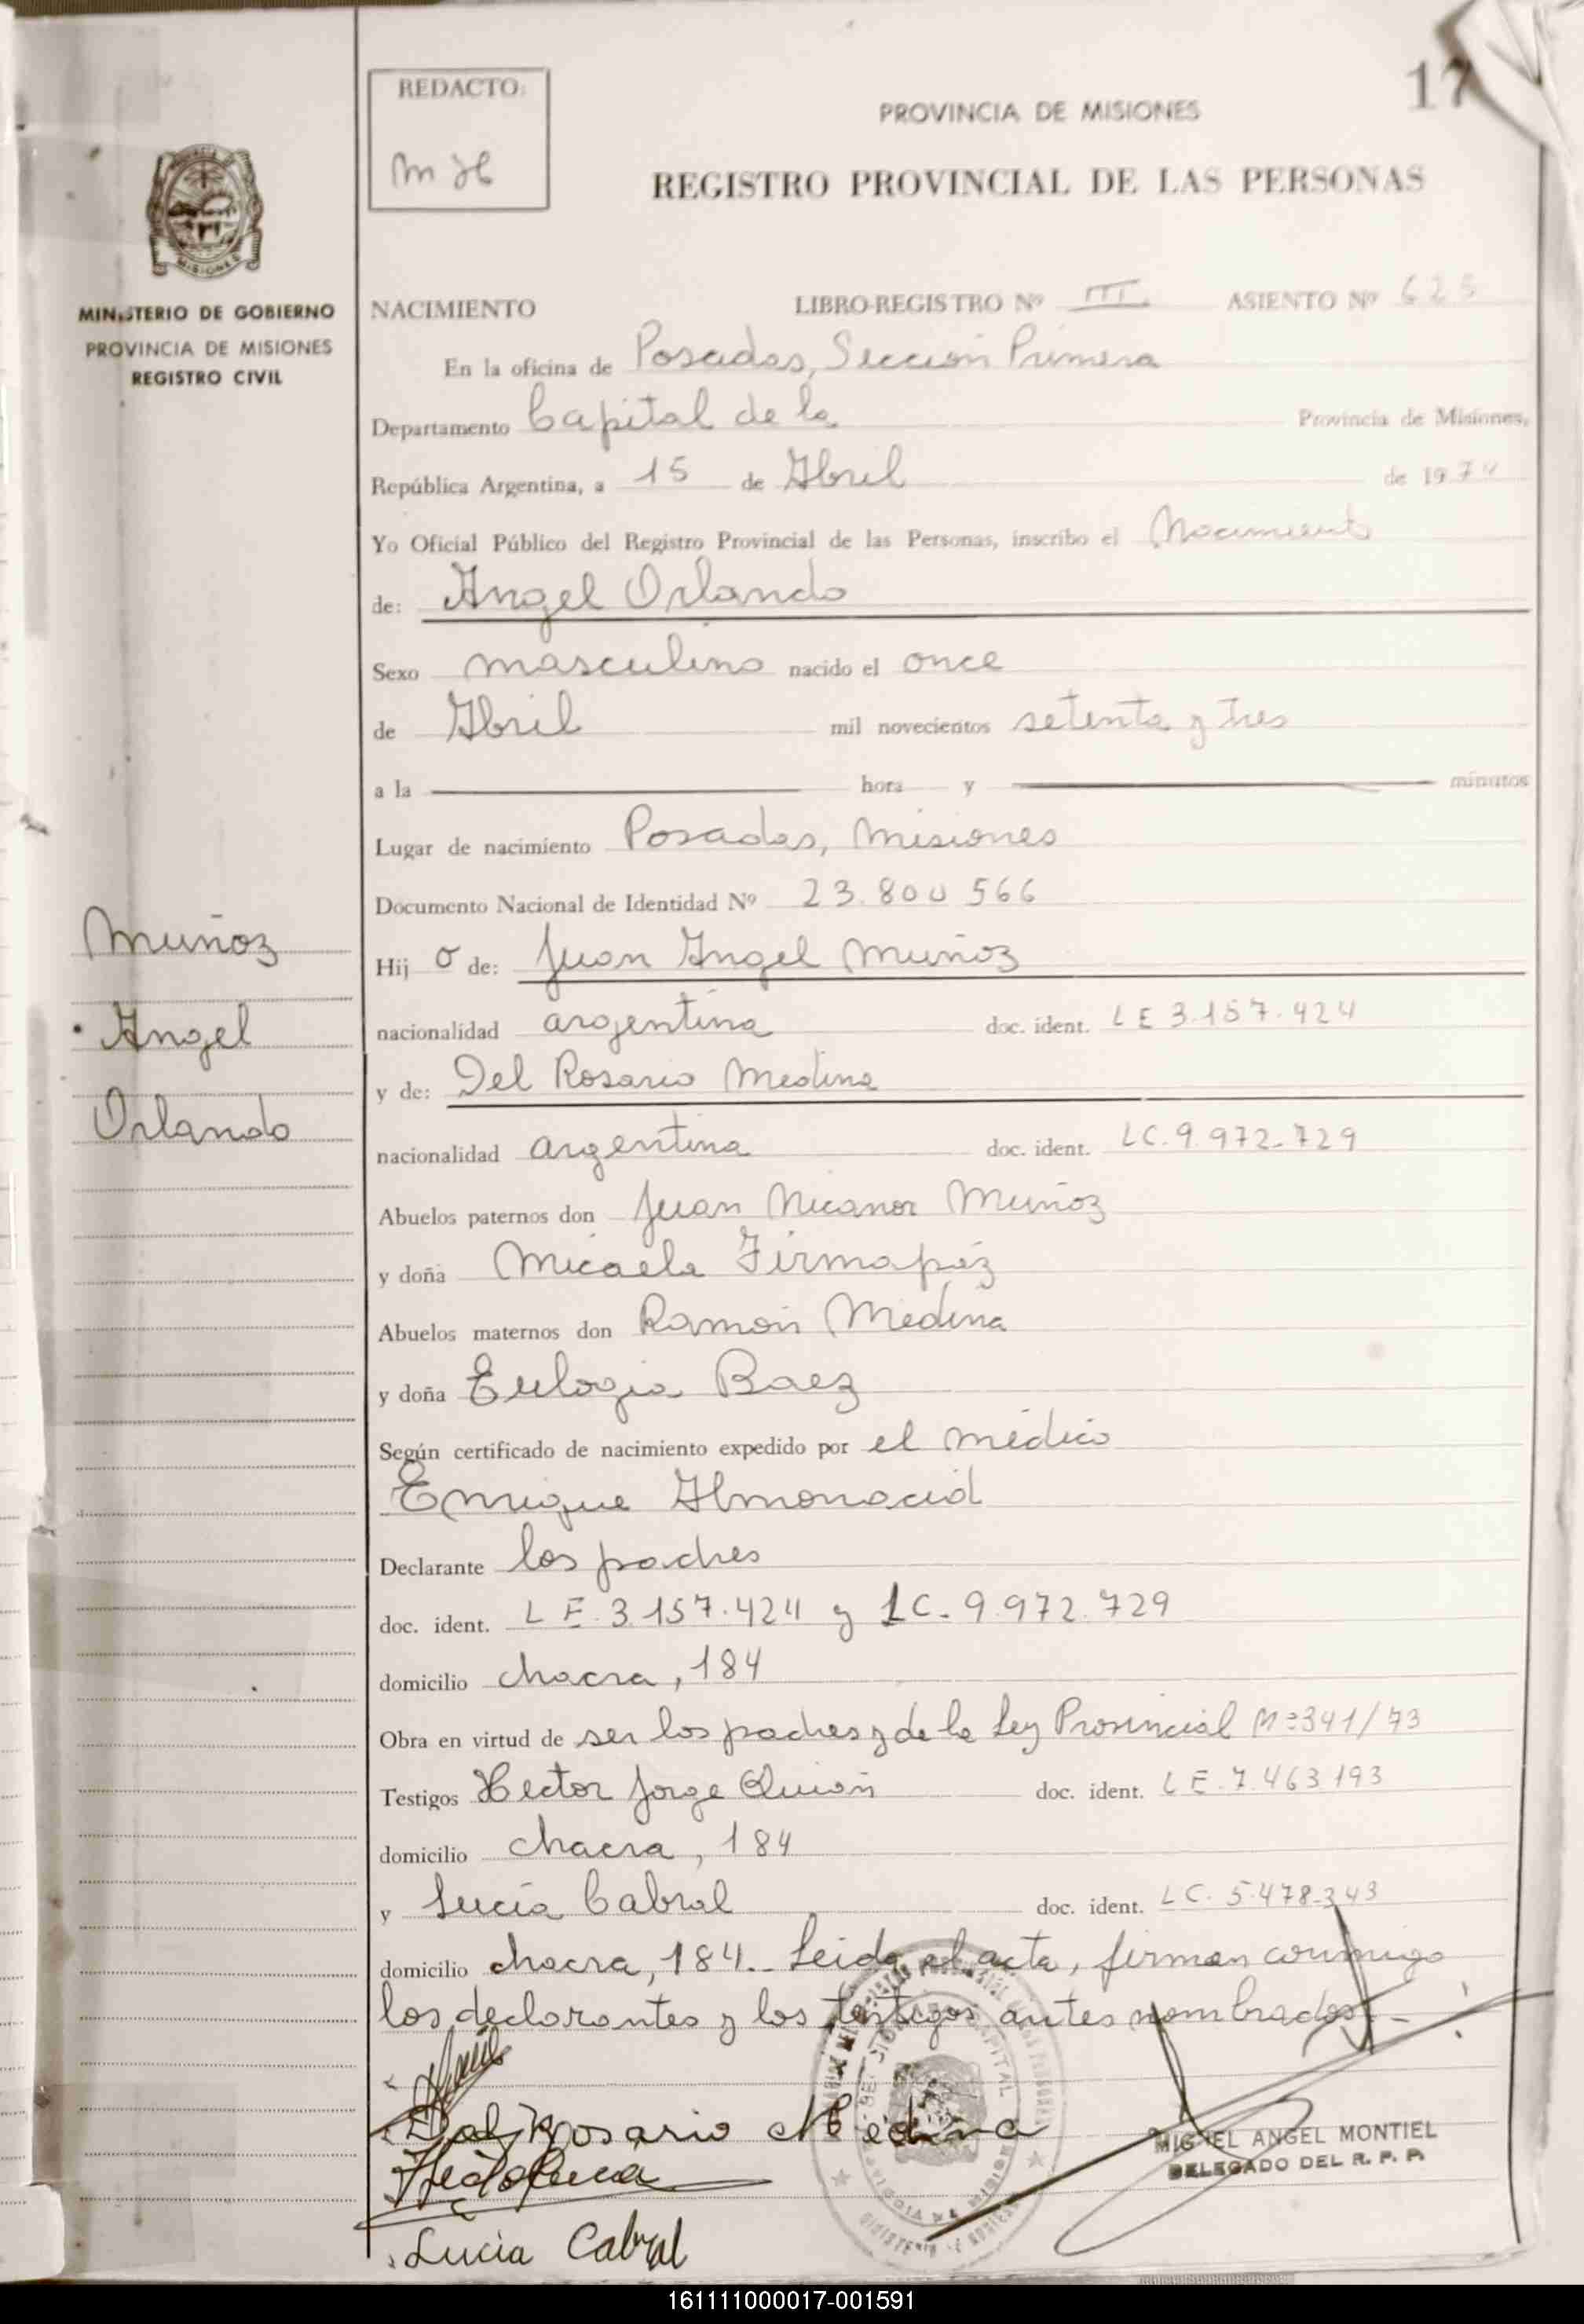 17
REDACTO:
m H
PROVINCIA DE MISIONES
REGISTRO PROVINCIAL DE LAS PERSONAS
MISIONES
MINISTERIO DE GOBIERNO
PROVINCIA DE MISIONES
REGISTRO CIVIL
NACIMIENTO LIBRO-REGISTRO Nº III ASIENTO Nº 625
En la oficina de Posadas, Sección Primera
Departamento Capital de la Provincia de Misiones,
República Argentina, a 15 de Abril de 1974
Yo Oficial Público del Registro Provincial de las Personas, inscribo el Nacimiento
de: Angel Orlando
Sexo masculino nacido el once
de Abril mil novecientos setenta y tres
a la hora y minutos
Lugar de nacimiento Posadas, Misiones
Documento Nacional de Identidad Nº 23.800 566
Muñoz
Angel
Orlando
Hij o de: Juan Angel Muñoz
nacionalidad argentina doc. ident. LE 3.157.424
y de: Del Rosario Medina
nacionalidad argentina doc. ident. LC. 9.972.729
Abuelos paternos don Juan Nicanor Muñoz
y doña Micaela Firmapáz
Abuelos maternos don Ramón Medina
y doña Eulogia Baez
Según certificado de nacimiento expedido por el médico
Enrique Almonacid
Declarante los padres
doc. ident. L E. 3.157.424 y LC. 9.972.729
domicilio chacra, 184
Obra en virtud de ser los padres y de la Ley Provincial Nº 341/73
Testigos Hector Jorge doc. ident. L E. 7.463.193
domicilio chacra, 184
y Lucía Cabral doc. ident. LC. 5.478.343
domicilio chacra, 184.- Leida el acta, firman conmigo
los declarantes y los testigos antes nombrados.-
Del Rosario Medina
MIGUEL ANGEL MONTIEL
DELEGADO DEL R. P. P.
Lucia Cabral
161111000017-001591